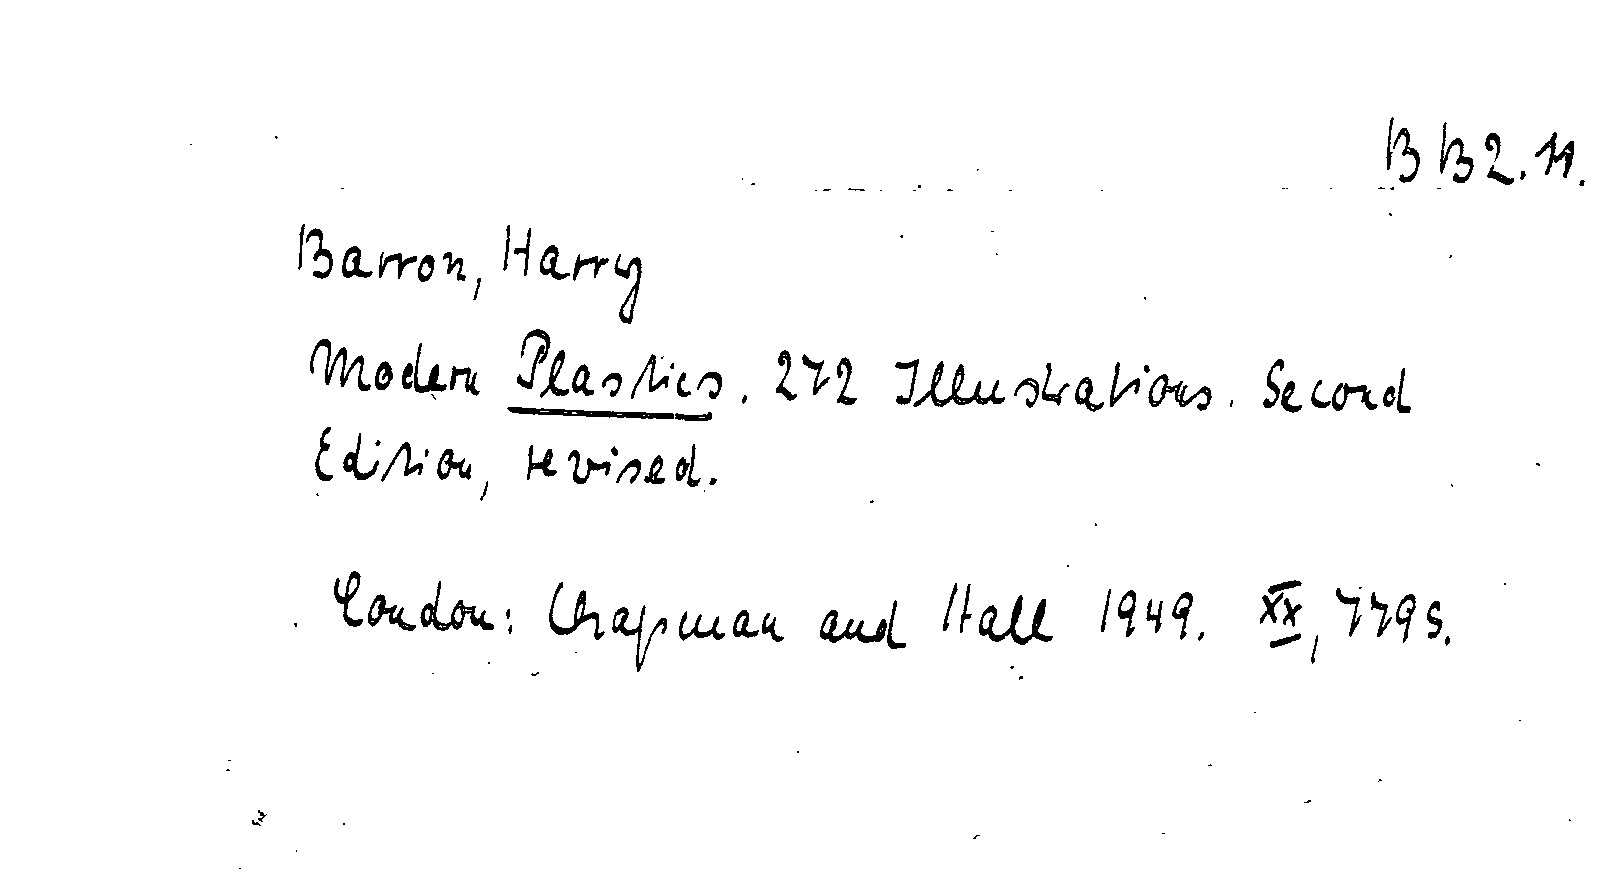 B B 2. 11.
Barron, Harry
Modern Plastics. 272 Illustrations. Second
Edition, revised.
London: Chapman and Hall 1949. XX, 779 S.